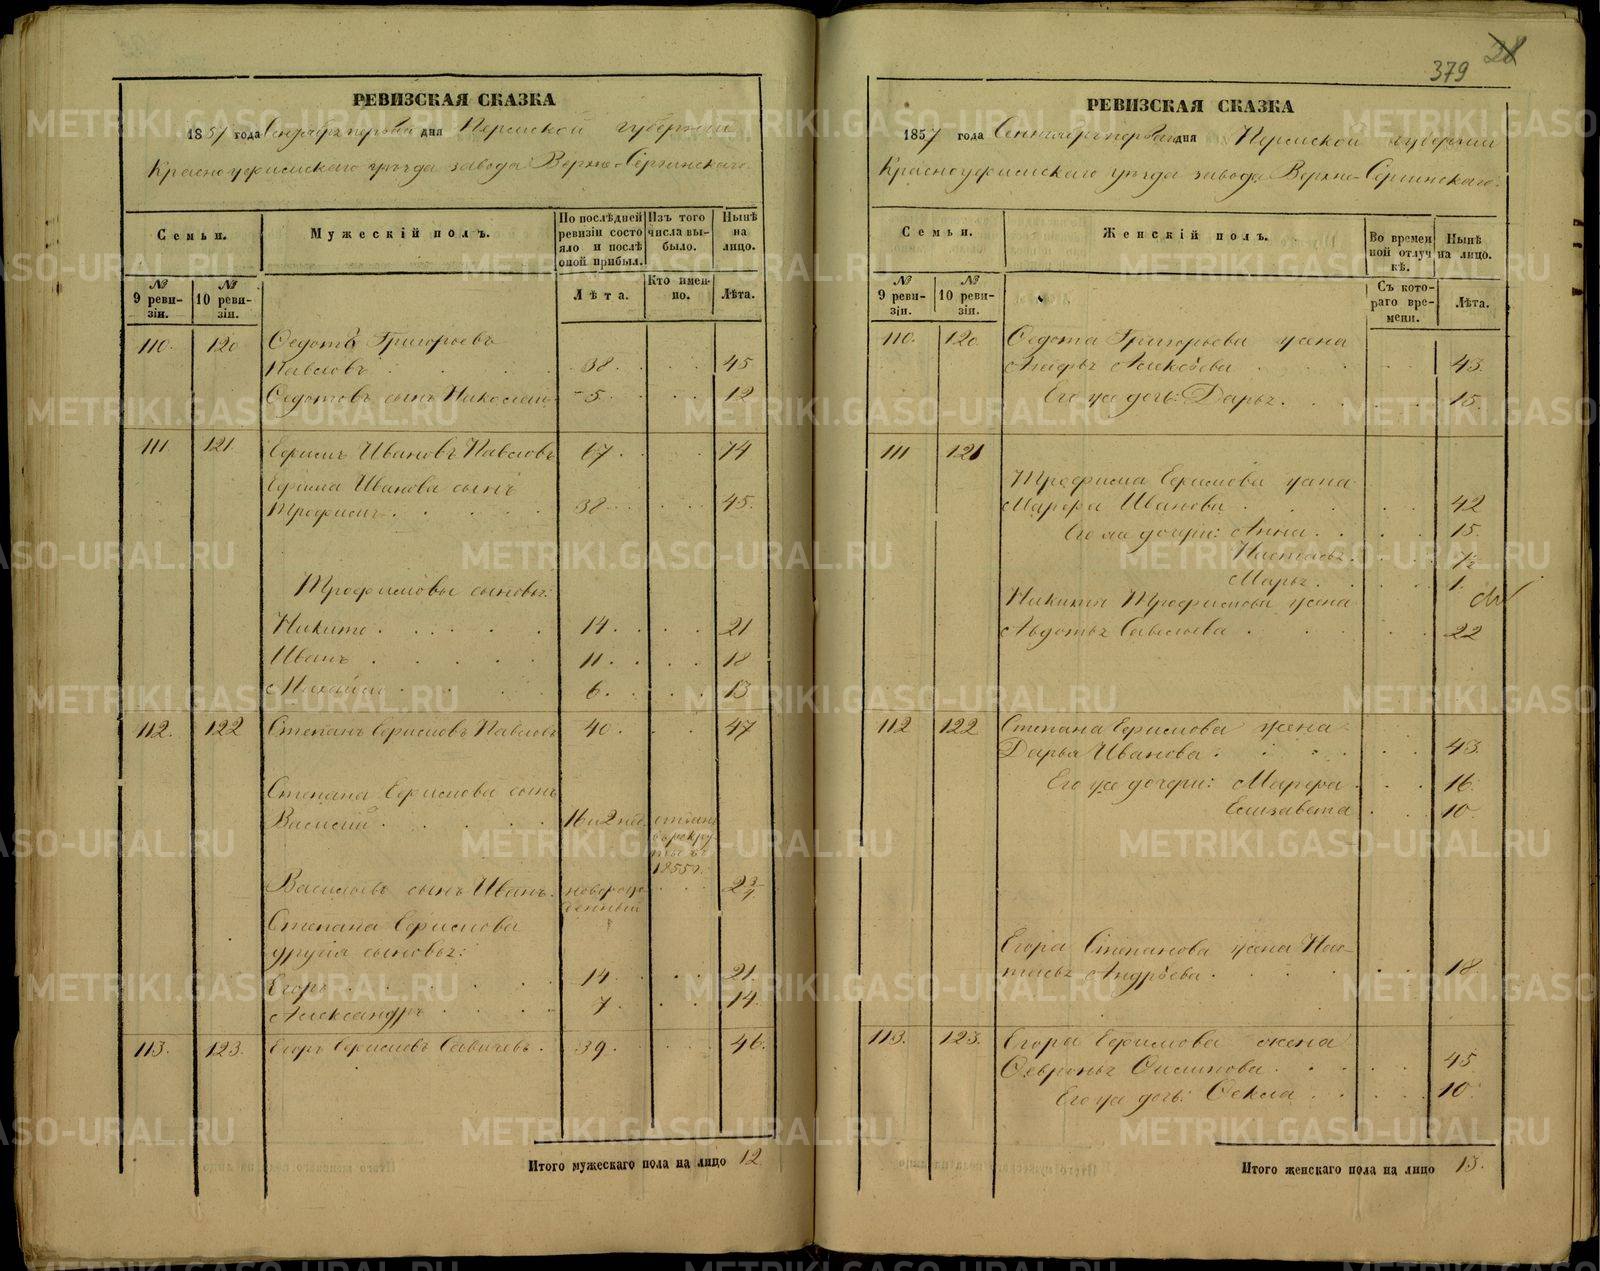 379
28
РЕВИЗСКАЯ СКАЗКА
1857 года Сентября первого дня Пермской губернии
Красноуфимскаго уѣзда завода Верхне-Сергинскаго.
Семьи.
Мужескій полъ.
По послѣдней ревизіи состояло и послѣ оной прибыл.
Изъ того числа выбыло.
Нынѣ на лицо.
№ 9 ревизіи.
№ 10 ревизіи.
Лѣта.
Кто именно.
Лѣта.
110. 120 Ѳедотъ Григорьевъ
Павловъ 38 45
Ѳедотовъ сынъ Николай 5 12
111 121 Ефимъ Ивановъ Павловъ 67 74
Ефима Иванова сынъ
Трофимъ 38 45.
Трофимовы сыновья:
Никита 14 21
Иванъ 11 18
Михайло 6 13
112. 122 Степанъ Ефимовъ Павловъ 40 47
Степана Ефимова сынъ
Василий 16
1855 г.
Васильевъ сынъ Иванъ новорожденный 2 3/4
Степана Ефимова
другия сыновья:
Егоръ 14 21.
Александръ 7 14.
113. 123. Егоръ Ефимовъ Савичевъ 39 46.
Итого мужескаго пола на лицо 12
РЕВИЗСКАЯ СКАЗКА
1857 года Сентября первого дня Пермской губернии
Красноуфимскаго уѣзда завода Верхне-Сергинскаго.
Семьи.
Женскій полъ.
Во временной отлучкѣ.
Нынѣ на лицо.
№ 9 ревизіи.
№ 10 ревизіи.
Съ котораго времени.
Лѣта.
110. 120. Ѳедота Григорьева жена
Алексѣева 43.
Его же дочь: Дарья 15.
111 121
Трофима Ефимова жена
Марфа Иванова 42
Его же дочери: Анна 15.
Настасья 7 1/2
Марья 1.
Никиты Трофимова жена
Авдотья Савельева 22
112 122 Степана Ефимова жена
Дарья Иванова 43.
Его же дочери: Марфа 16.
Елизавета 10.
Егора Степанова жена Нас-
тасья Андрѣева 18
113. 123. Егора Ефимова жена
Ѳевронья 45
Его же дочь: Ѳекла 10.
Итого женскаго пола на лицо 13.
METRIKI.GASO-URAL.RU